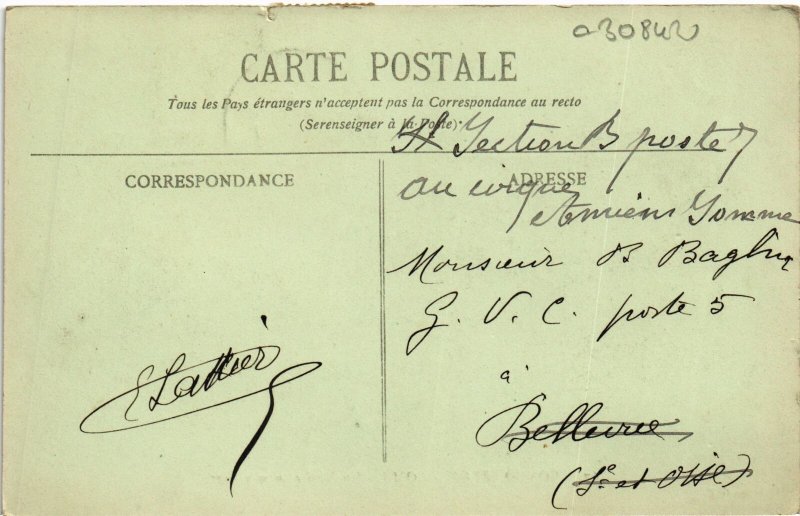 030842
CARTE POSTALE
Tous les Pays étrangers n'acceptent pas la Correspondance au recto
(Serenseigner à la Poste)
Section B poste 7
CORRESPONDANCE
ADRESSE
au cirque
Amiens Somme
Monsieur B Baglin
G. V. C. poste 5
à
Bellevue
(Se et Oise)